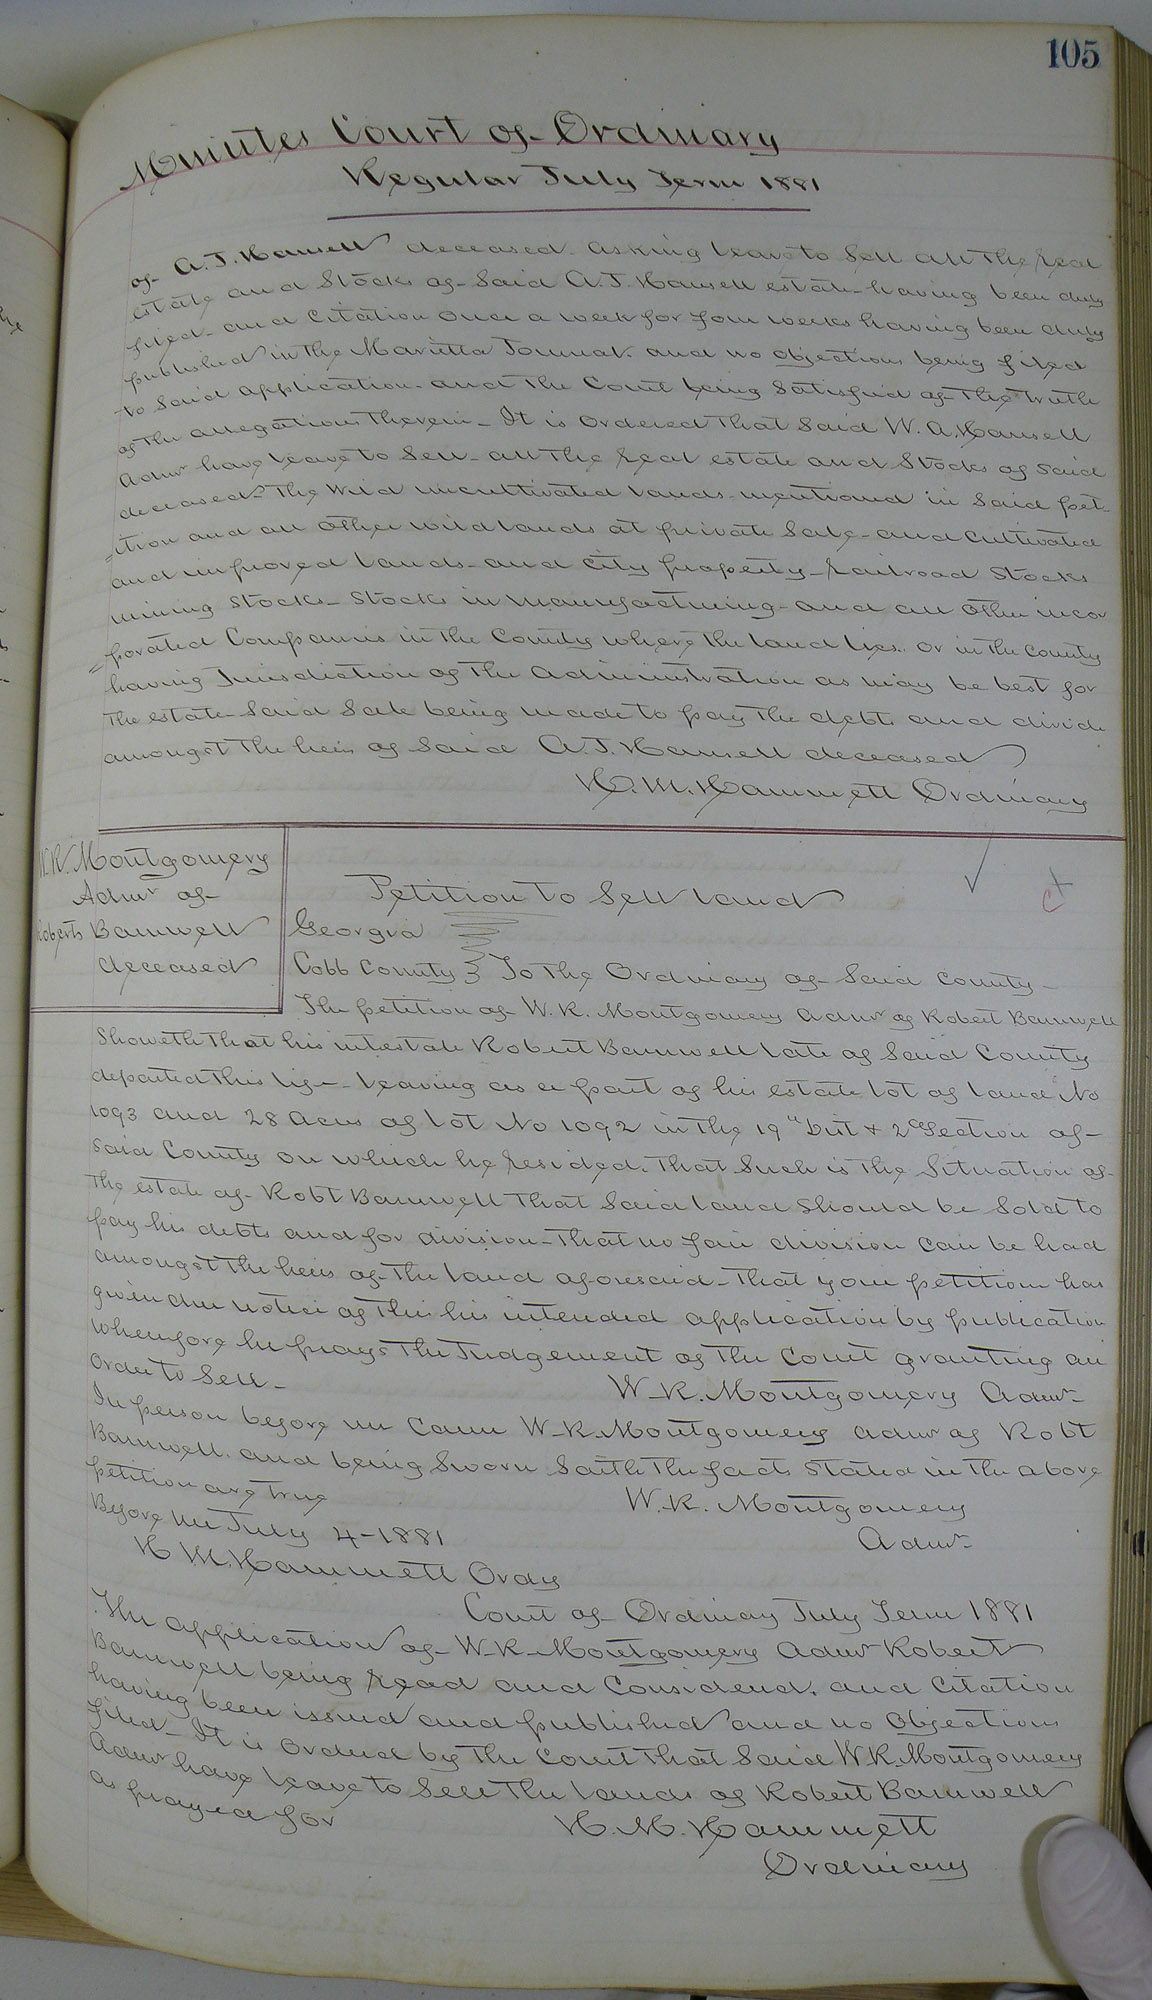 105
Minutes Court of Ordinary
Regular July Term 1881
of A.J. Hansell deceased asking leave to Sell all the real
estate and Stocks of Said A.J. Hansell estate having been duly
filed and Citation once a week for four weeks having been duly
published in the Marietta Journal. and no objections being filed
to Said application and the Court being Satisfied of the truth
of the allegations therein - It is ordered that Said W. A. Hansell
Admr have leave to Sell all the real estate and Stocks of Said
deceased - The Wild uncultivated lands mentioned in Said pet
=ition and all other wild lands at private Sale - and Cultivated
and improved lands - and City property - railroad Stocks
mining Stocks - Stocks in Manufacturing - and all other incor
=porated Companies in the County where the land lies. or in the County
having Jurisdiction of the Administration as may be best for
the estate Said Sale being made to pay the debts and divide
amongst the heirs of Said A.J. Hansell deceased
H. M. Hammett Ordinary
W.R. Montgomery
Admr of
Roberts Barnwell
deceased
Petition to Sell land
Georgia
Cobb County } To the Ordinary of Said County -
The petition of W. R. Montgomery Admr of Robert Barnwell
Showeth that his intestate Robert Barnwell late of Said County
departed this life - leaving as a part of his estate lot of land No
1093 and 28 acres of lot No 1092 in the 19th Dist & 2d Section of
Said County on which he resided. That Such is the Situation of
the estate of Robt Barnwell that Said land Should be Sold to
pay his debts and for division - that no fair division can be had
amongst the heirs of the land aforesaid - that your petitioner has
given due notice of this his intended application by publication
Wherefore he prays the Judgement of the Court granting an
order to Sell -
W. R. Montgomery Admr
In person before me came W. R. Montgomery admr of Robt
Barnwell. and being Sworn Saith the facts Stated in the above
petition are true
W. R. Montgomery
Admr
Before me July 4 - 1881
H M. Hammett Ordy
Court of Ordinary July Term 1881
The application of W. R. Montgomery Admr Robert
Barnwell being read and Considered. and Citation
having been issued and published and no Objections
filed - It is ordered by the Court that Said W. R. Montgomery
Admr have leave to Sell the lands of Robert Barnwell
as prayed for
H. M. Hammett
Ordinary